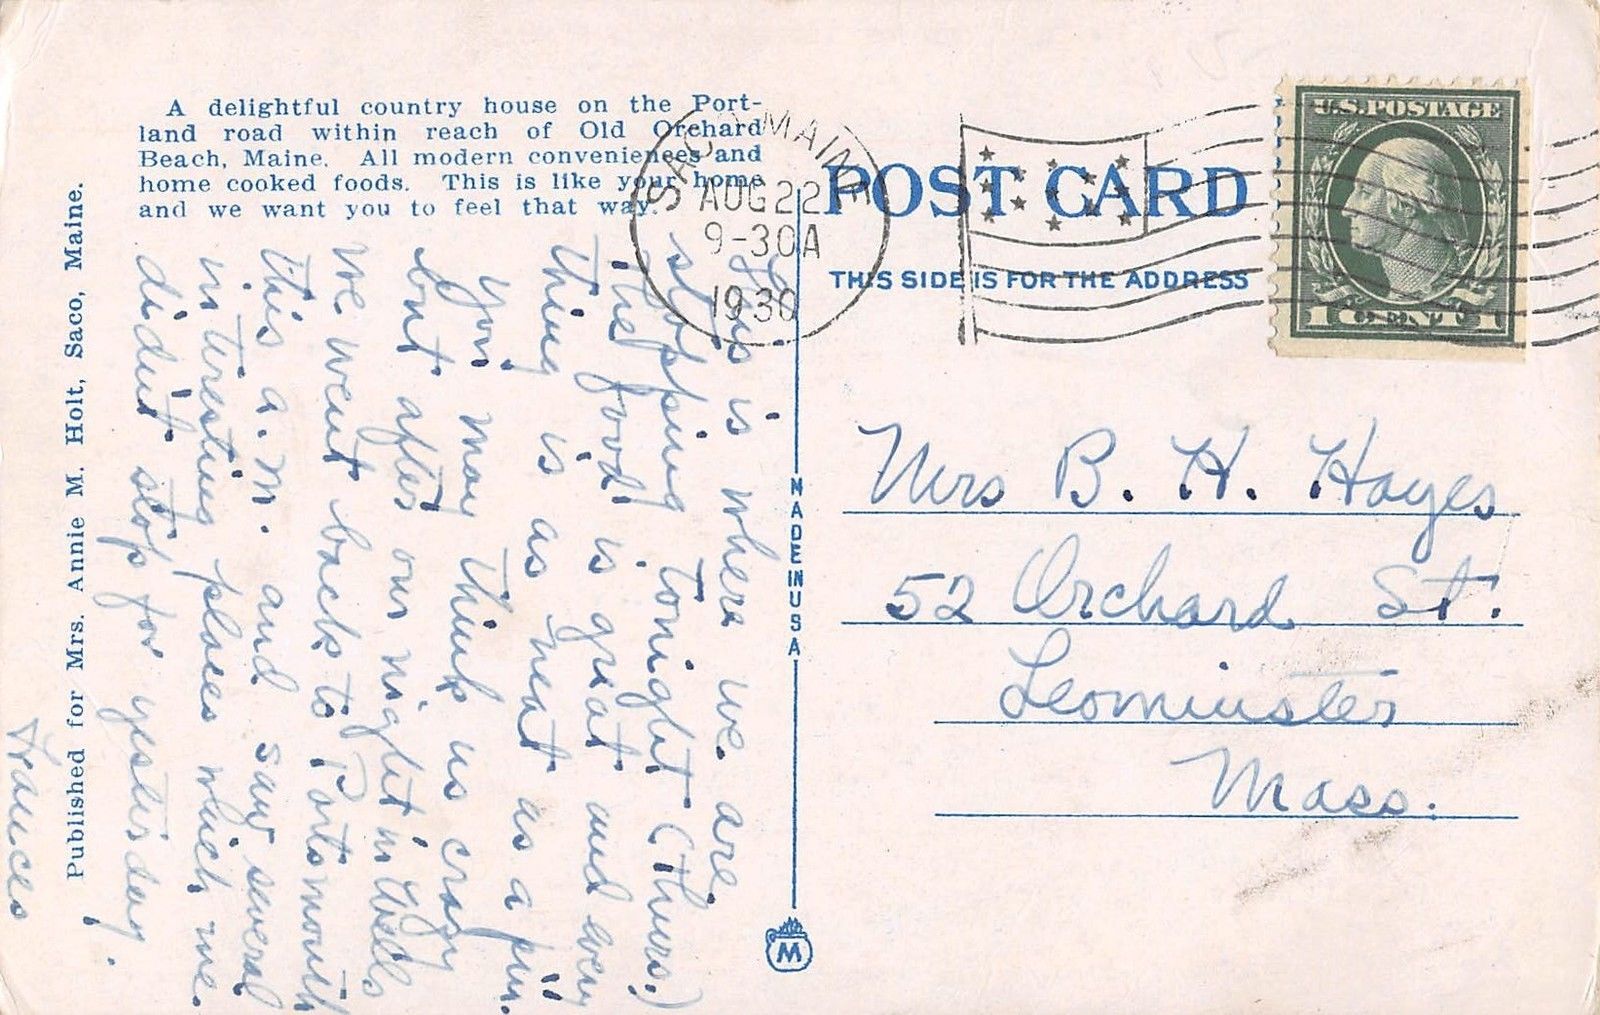 A delightful country house on the Port-
land road within reach of Old Orchard
Beach, Maine. All modern conveniences and
home cooked foods. This is like your home
and we want you to feel that way.
Published for Mrs. Annie M. Holt, Saco, Maine.
This is where we are
stopping tonight (Thurs.)
The food is great and every
thing is as neat as a pin.
You may think us crazy
but after our night in Wells
we went back to Portsmouth
this a.m. and saw several
interesting places which we
didn't stop for yesterday.
Frances
SACO MAINE
AUG 22
9-30A
1930
POST CARD
THIS SIDE IS FOR THE ADDRESS
U.S. POSTAGE
1 1
MADE IN USA
M
Mrs B. H. Hayes
52 Orchard St.
Leominster
Mass.